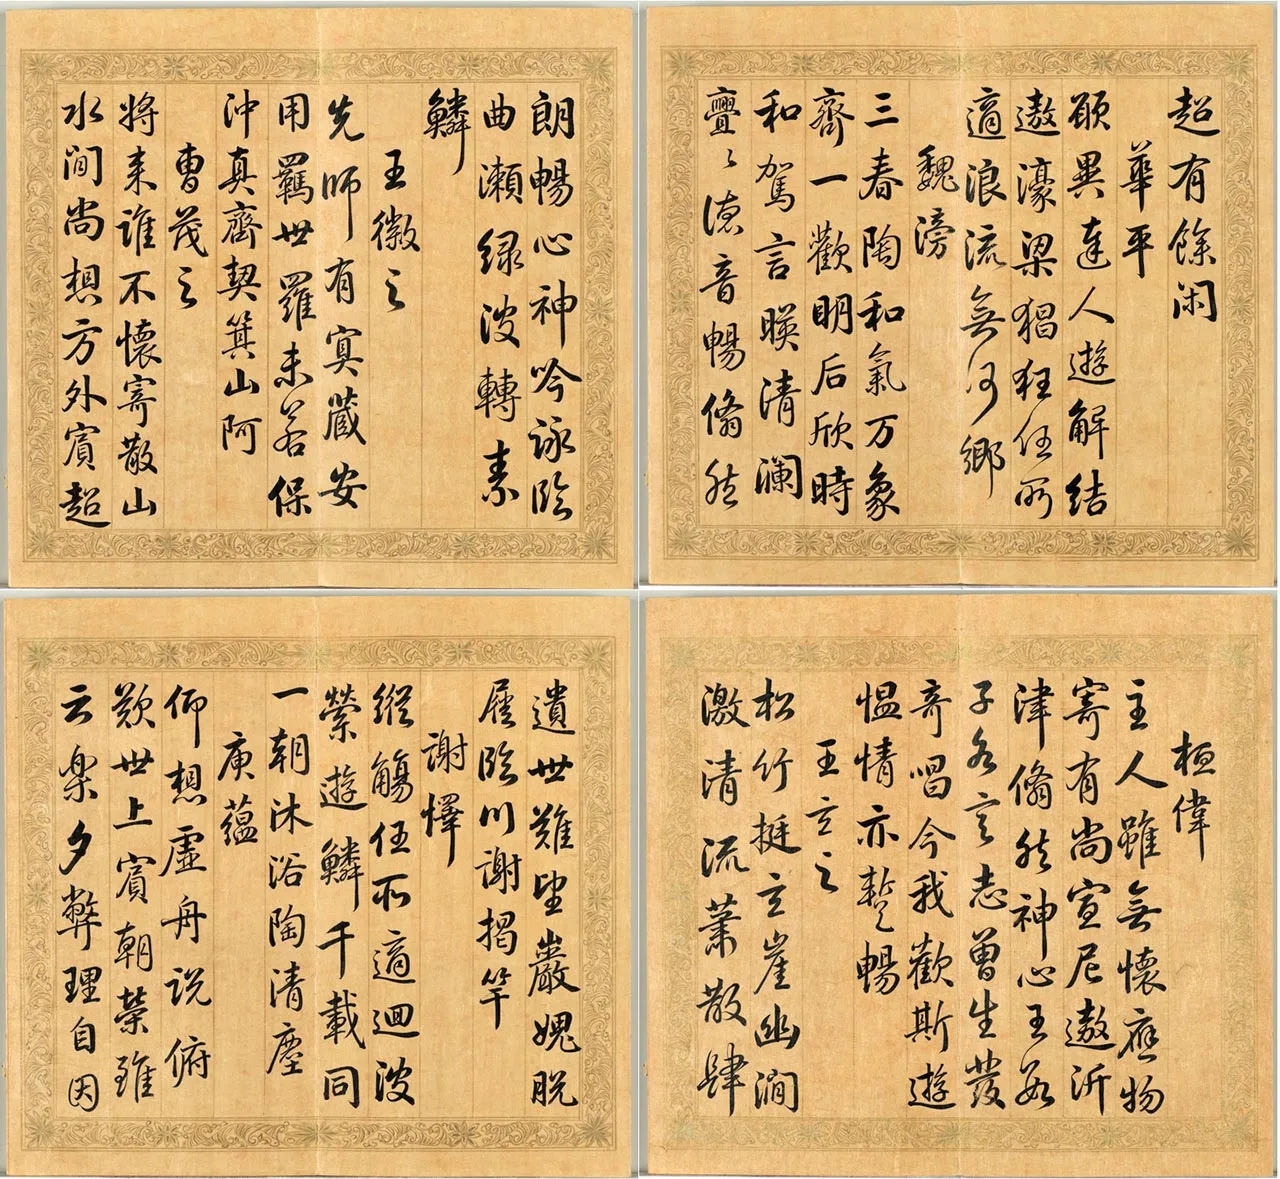 朗暢心神吟詠臨
曲瀬綠波轉素
鱗
王徽之
先師有冥藏安
用羈世羅未若保
沖真齊契箕山阿
曹茂之
將来誰不懷寄散山
水間尚想方外賓超
超有餘閑
華平
願與達人遊解結
遨濠梁猖狂任所
適浪流無何鄉
魏滂
三春陶和氣万象
齊一歡明后欣時
和駕言暎清瀾
亹〻德音暢翛然
遺世難望巖愧脫
屣臨川謝揭竿
謝懌
縱觴任所適迴波
縈遊鱗千載同
一朝沐浴陶清塵
庾蘊
仰想虛舟说俯
歎世上賓朝榮雖
云樂夕弊理自因
桓偉
主人雖無懷應物
寄有尚宣尼遨沂
津翛然神心王數
子各言志曾生發
奇唱今我歡斯遊
慍情亦暫暢
王玄之
松竹挺玄崖幽澗
激清流蕭散肆